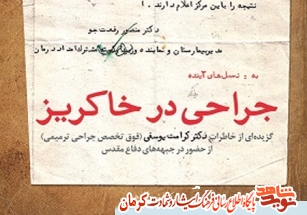 نتیجه را باین مرکز اعلام دارند .
دکتر منصور رفعت جو
به : نسل‌های آینده
جراحی در خاکریز
گزیده‌ای از خاطرات دکتر کرامت یوسفی (فوق تخصص جراحی ترمیمی)
از حضور در جبهه‌های دفاع مقدس
نوید شاهد
پایگاه اطلاع رسانی فرهنگ ایثار و شهادت کرمان